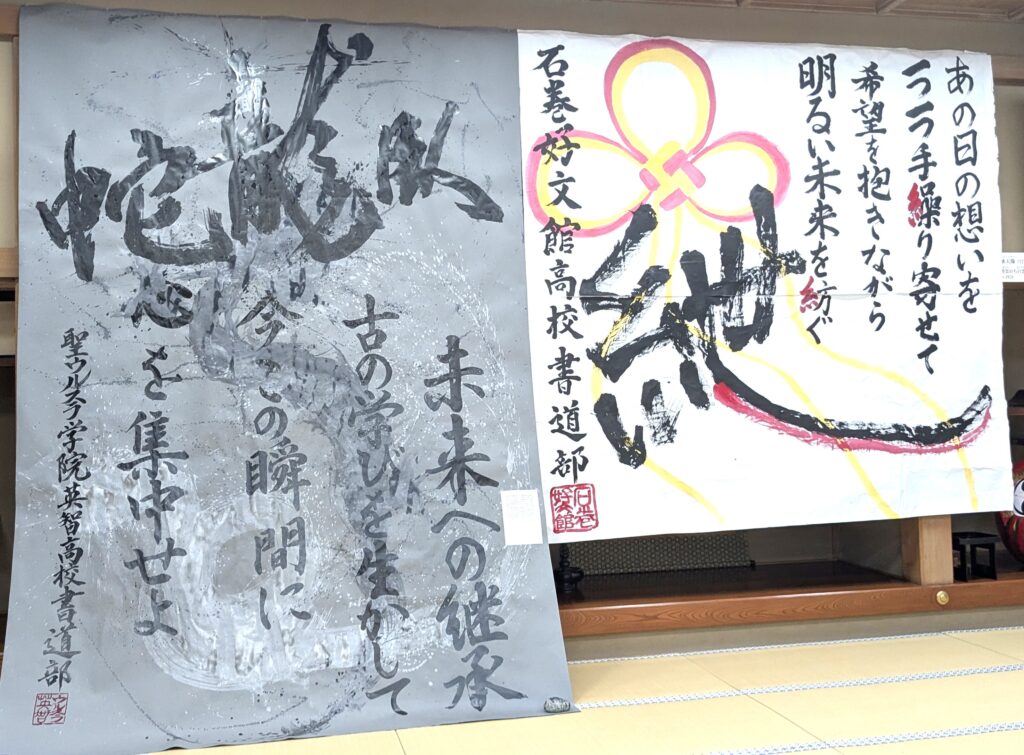 あの日の想いを
一つ一つ手繰り寄せて
希望を抱きながら
明るい未来を紡ぐ
紲
石巻好文館高校書道部
石巻好文館
臥龍蛇
未来への継承
古の学びを生かして
今この瞬間に
心を集中せよ
聖ウルスラ学院英智高校書道部